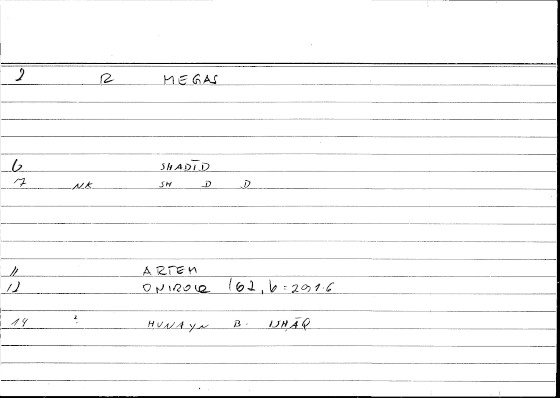 2 R MEGAS
6 SHADĪD
7 NK SH D D
11 ARTEM
12 ONIROCR 162, 6 = 291.6
14 2 HUNAYN B. ISHĀQ